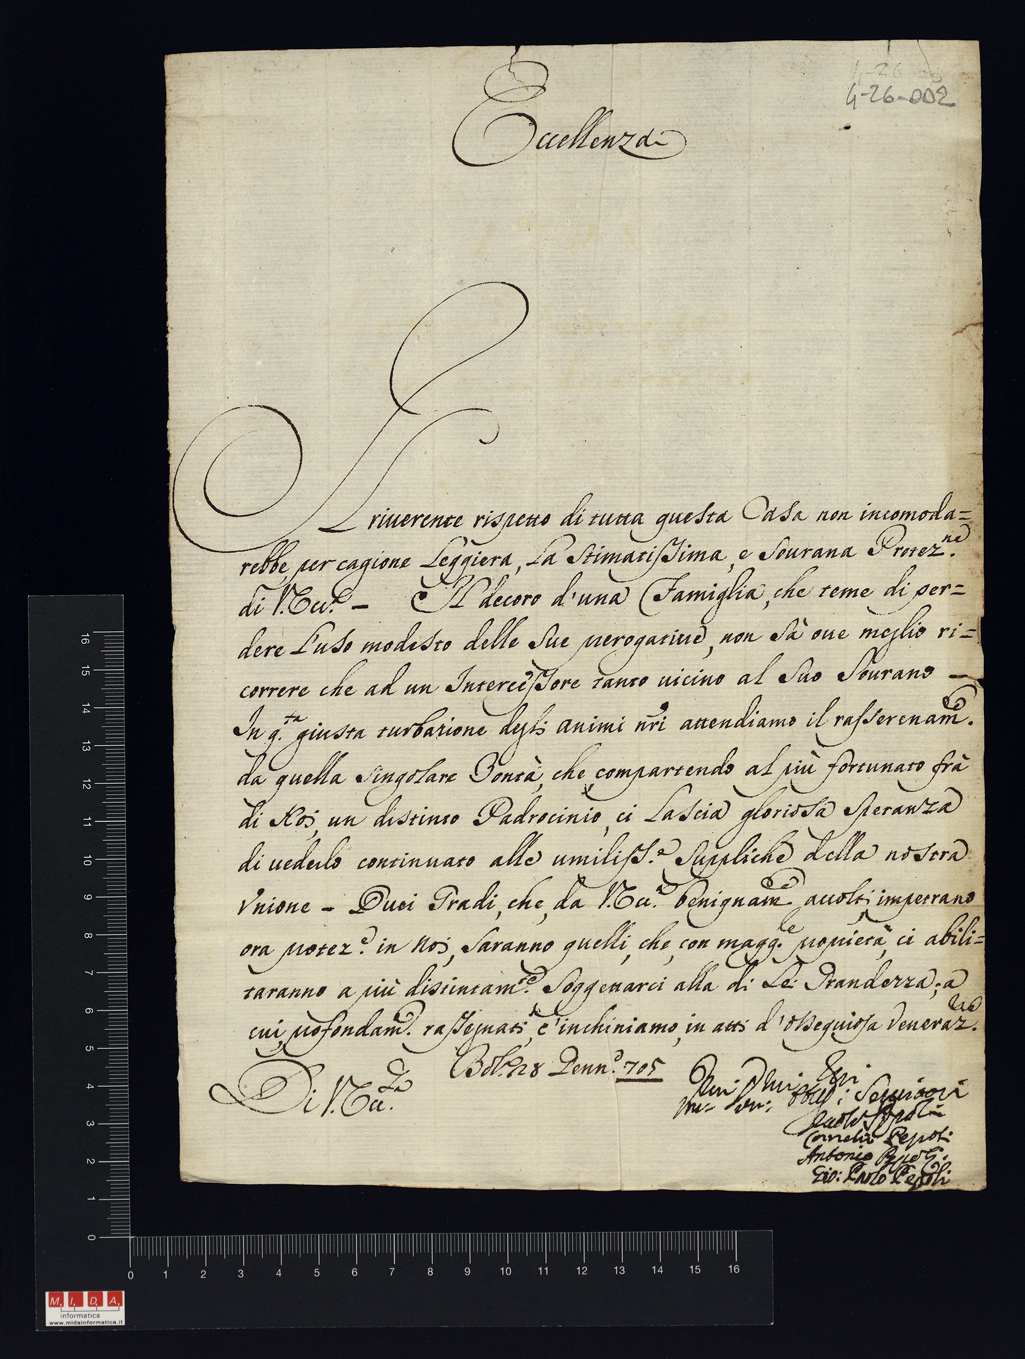 4-26-002
Eccellenza
Il riuerente rispetto di tutta questa Casa non incomoda=
rebbe per cagione leggiera, la stimatissima, e Sourana Protez.ne
di V. Ecc.a – Il decoro d'una Famiglia, che teme di per=
dere l'uso modesto delle sue prerogatiue, non sà oue meglio ri=
correre che ad un Intercessore tanto uicino al suo Sourano –
In q.ta giusta turbazione degli animi nri attendiamo il rasserenam.to
da quella singolare Bontà, che, compartendo al più fortunato frà
di Noi, un distinto Padrocinio, ci lascia gloriosa speranza
di uederlo continuato alle umiliss.e suppliche della nostra
Vnione – Quei Gradi, che, da V. Ecc.a benignam.te accolti, impetrano
ora protez.e in noi, saranno quelli, che, con magg.e proprietà, ci abili=
taranno a più distintam.te soggettarci alla di Lei Grandezza; a
cui, profondam.te rassegnati, c'inchiniamo, in atti d'ossequiosa Veneraz.ne
Bol.a 28 Genn.o 705
Di V. Ecc.za
Seruitori
Pepoli
Cornelio Pepoli
Antonio Pepoli
Gio: Paolo Pepoli
16
15
14
13
12
11
10
9
8
7
6
5
4
3
2
1
0
0 1 2 3 4 5 6 7 8 9 10 11 12 13 14 15 16
M. I. D. A.
informatica
www.midainformatica.it